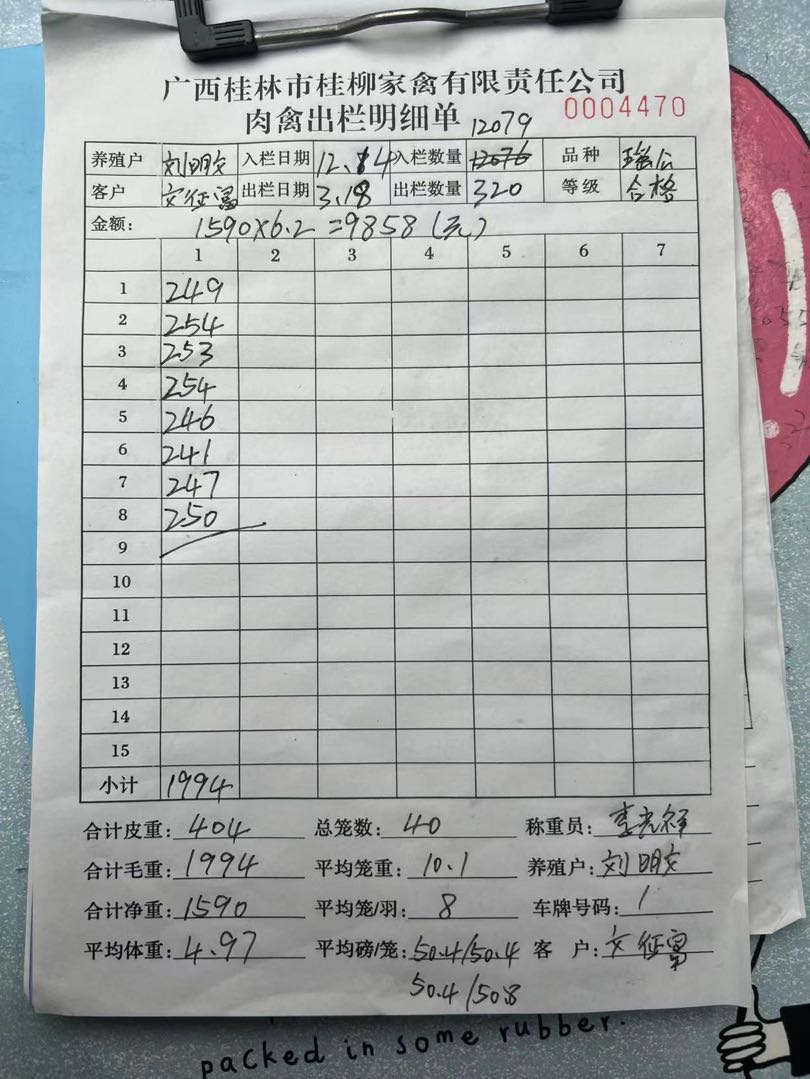 广西桂林市桂柳家禽有限责任公司
肉禽出栏明细单 12079 0004470
养殖户 刘明文 入栏日期 12.14 入栏数量 12076 品种 瑶公
客户 文征富 出栏日期 3.18 出栏数量 320 等级 合格
金额: 1590×6.2=9858(元)
1 2 3 4 5 6 7
1 249
2 254
3 253
4 254
5 246
6 241
7 247
8 250
9
10
11
12
13
14
15
小计 1994
合计皮重: 404 总笼数: 40 称重员: 李
合计毛重: 1994 平均笼重: 10.1 养殖户: 刘明文
合计净重: 1590 平均笼/羽: 8 车牌号码: 1
平均体重: 4.97 平均磅/笼: 50.4/50.4 客 户: 文征富
50.4/50.8
packed in some rubber.